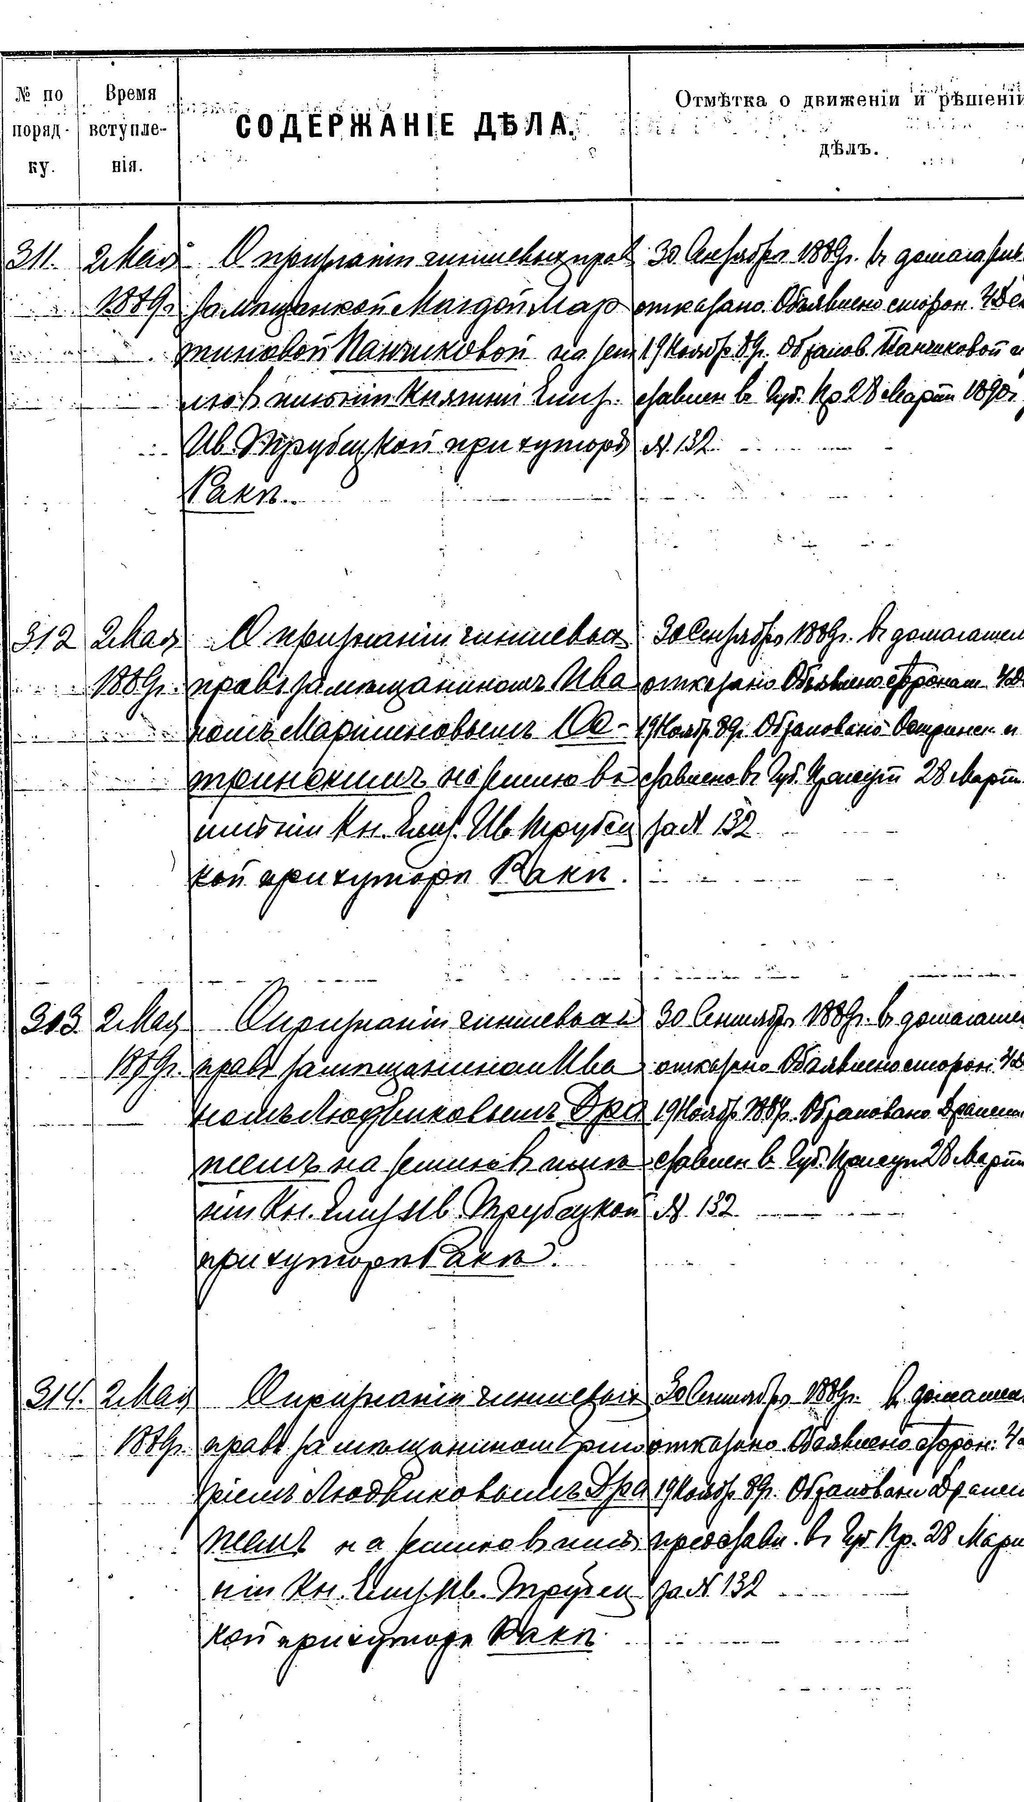 № по поряд- ку.
Время вступле- нія.
СОДЕРЖАНІЕ ДѢЛА.
Отмѣтка о движеніи и рѣшеніи
дѣлъ.
311. 2 Мая О признаніи чиншевых прав
1889г. за мѣщанкой Магдой Мар
тиновой Панчиковой на зем
лю в имѣніи Княгини Елиз.
Ив. Трубецкой при хуторѣ
Ракѣ.
30 Сентября 1889г. в домагатель
отказано. Объявлено сторон. 4 Де
19 Ноябр 89г. Обжалов. Панчиковой и
в Губ. Пр 28 Марта 1890г.
№ 132
312 2 Мая О признаніи чиншевых
1889г. правъ за мѣщаниномъ Ива
номъ Мартиновымъ Юс-
тринскимъ на землю въ
имѣніи Кн. Елиз. Ив Трубец
кой при хуторѣ Ракѣ.
30 Сентября 1889г. в домагател
отказано Объявлено сторонам
19 Ноябр 89г. Обжаловано и
в Губ. Присут 28 Марта
за № 132
313. 2 Мая О признаніи чиншевых
1889г. правъ за мѣщанином Ива
номъ Людвиковымъ Дра
жемъ на землю в имѣ
ніи Кн. Елиз. Ив. Трубецкой
при хуторѣ Ракѣ.
30 Сентябр 1889г. в домагате
отказано Объявлено сторон.
19 Ноябр 1889г. Обжаловано
в Губ. Присут 28 Марта
№ 132
314. 2 Мая О признаніи чиншевых
1889г. правъ за мѣщанином Григо
ріемъ Людвиковымъ Дра
жемъ на землю в имѣ
ніи Кн. Елиз. Ив. Трубец
кой при хуторѣ Ракѣ.
30 Сентября 1889г. в домагател
отказано. Объявлено сторон.
19 Ноябр 89г. Обжаловано
представл. в Губ Пр. 28 Мар
за № 132